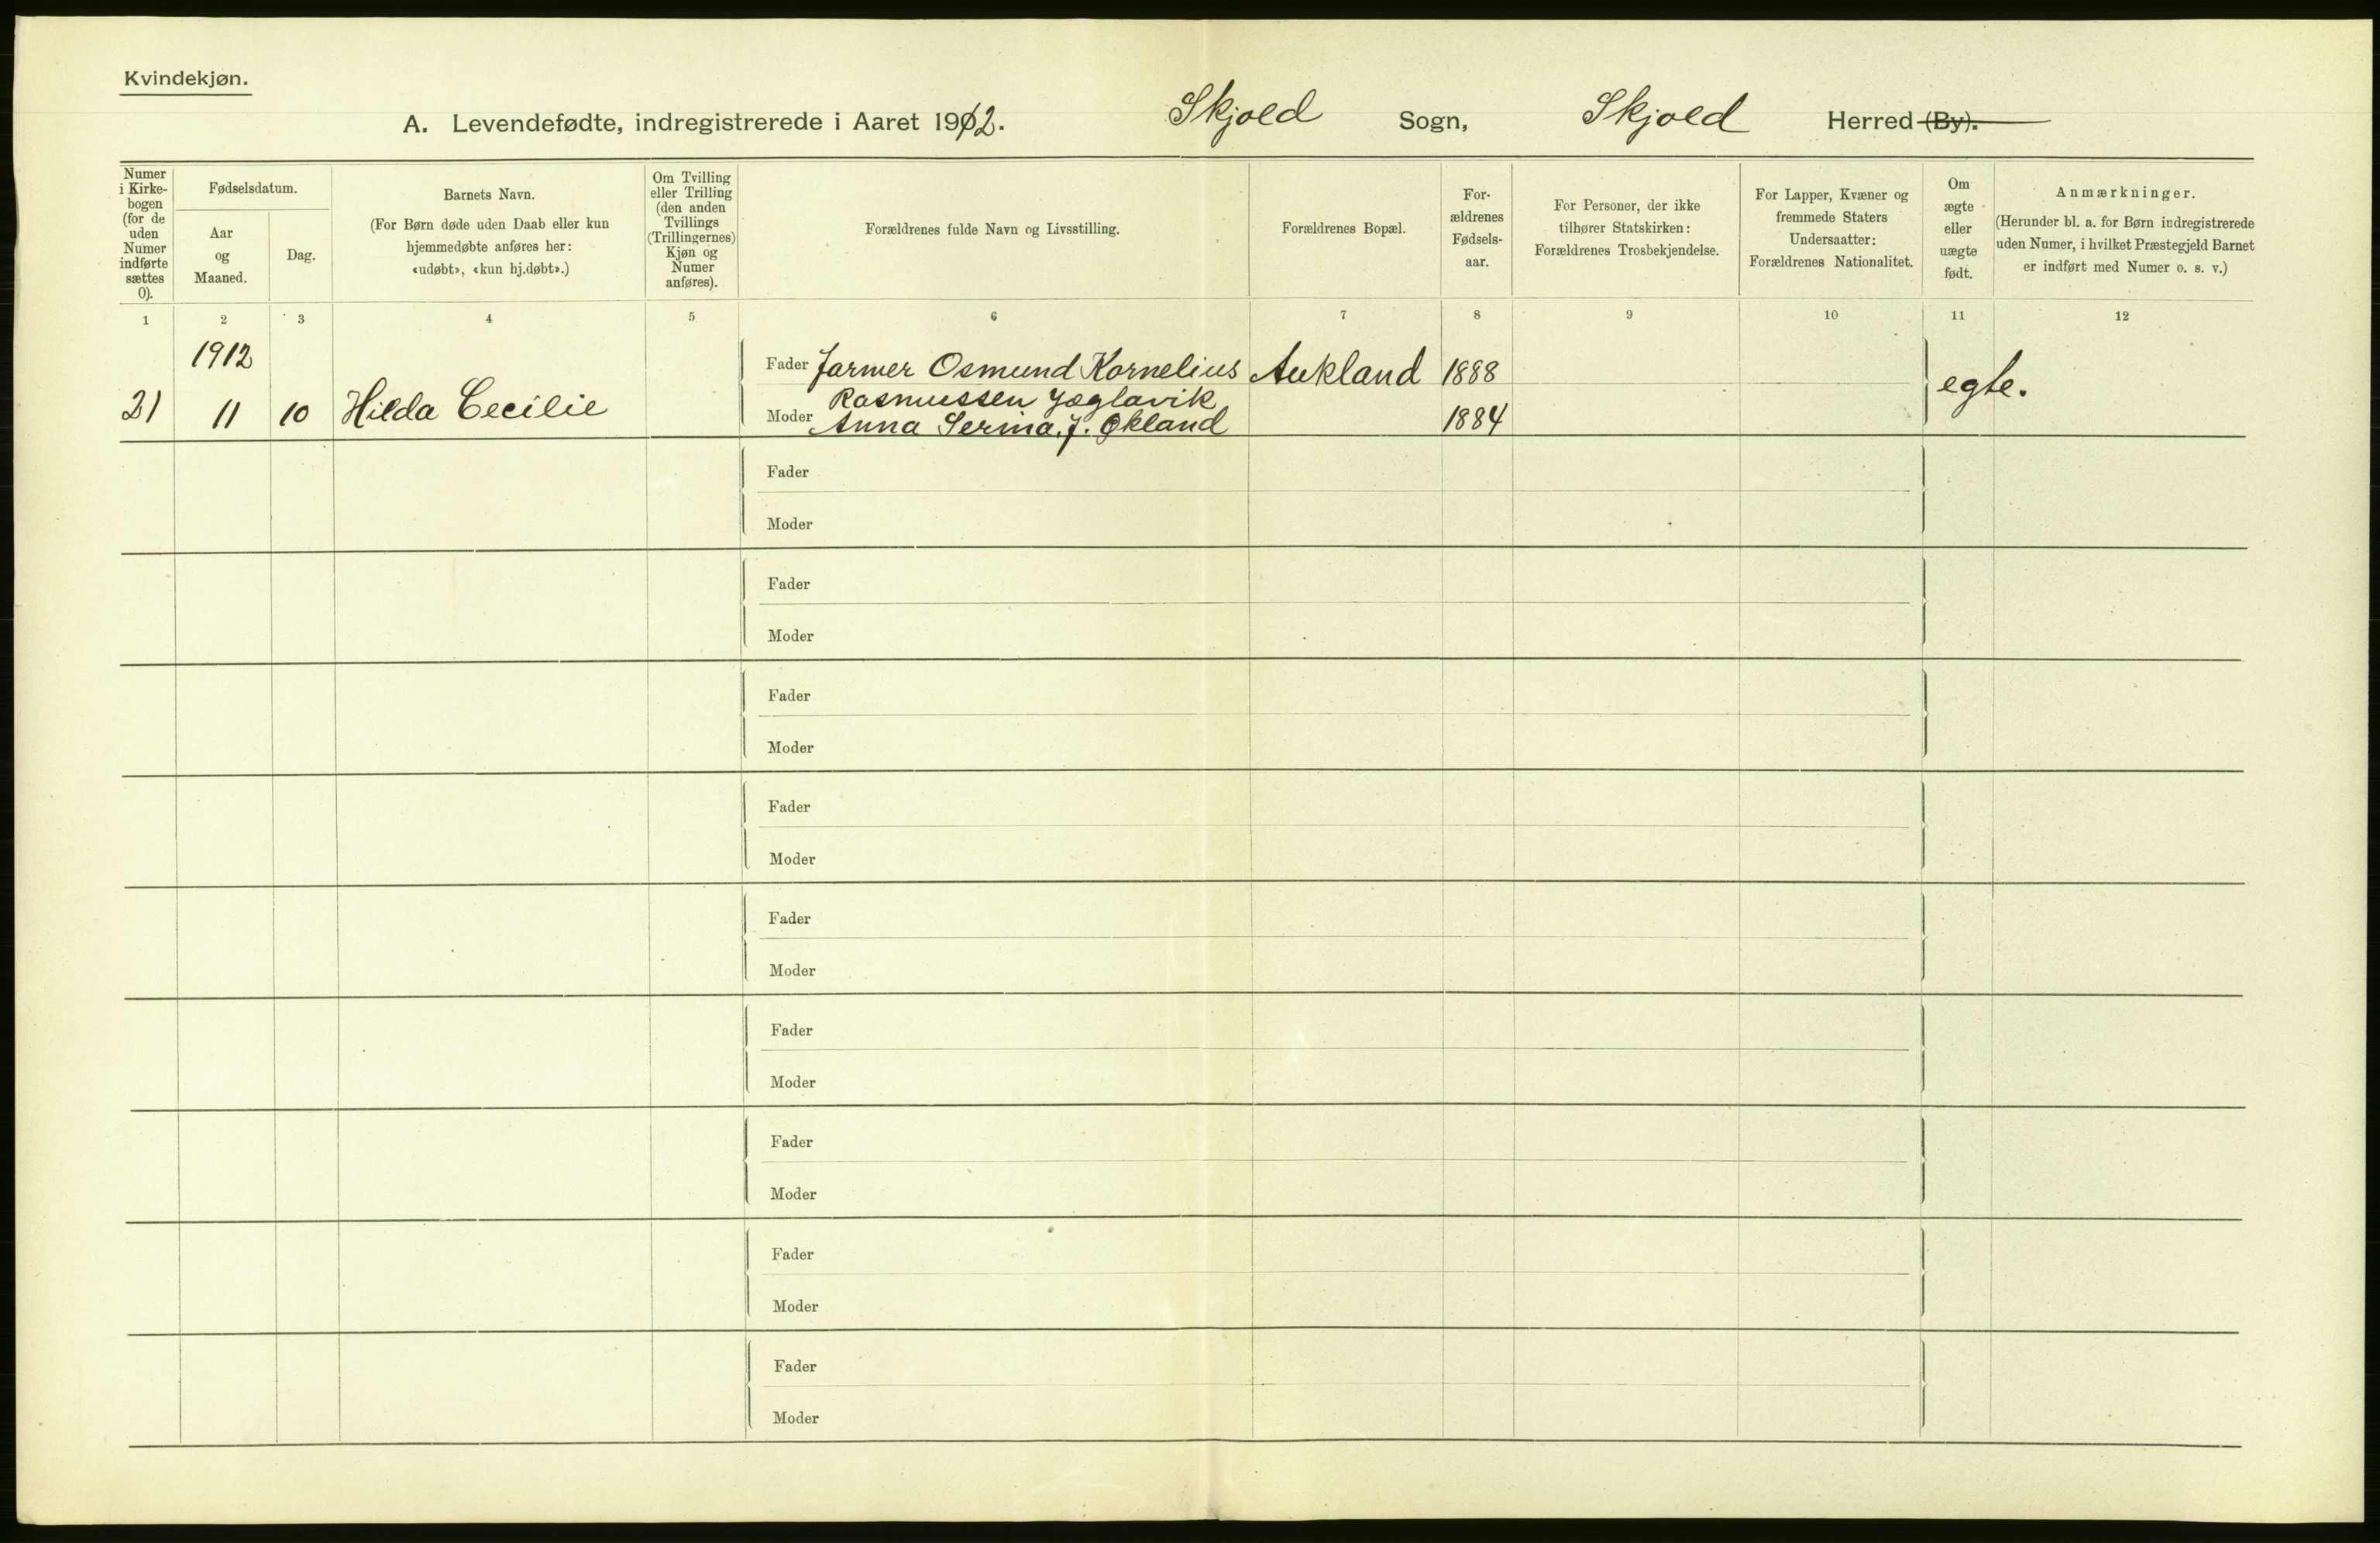 Kvindekjøn.
A. Levendefødte, indregistrerede i Aaret 1912. Skjold Sogn, Skjold Herred (By).
Numer i Kirke-bogen (for de uden Numer indførte sættes 0).
Fødselsdatum.
Aar og Maaned.
Dag.
Barnets Navn.
(For Børn døde uden Daab eller kun
hjemmedøbte anføres her:
«udøbt», «kun hj.døbt».)
Om Tvilling
eller Trilling
(den anden
Tvillings
(Trillingernes)
Kjøn og
Numer
anføres).
Forældrenes fulde Navn og Livsstilling.
Forældrenes Bopæl.
For-
ældrenes
Fødsels-
aar.
For Personer, der ikke
tilhører Statskirken:
Forældrenes Trosbekjendelse.
For Lapper, Kvæner og
fremmede Staters
Undersaatter:
Forældrenes Nationalitet.
Om
ægte
eller
uægte
født.
Anmærkninger.
(Herunder bl. a. for Børn indregistrerede
uden Numer, i hvilket Præstegjeld Barnet
er indført med Numer o. s. v.)
1 2 3 4 5 6 7 8 9 10 11 12
1912
Fader Farmer Osmund Kornelius Aukland 1888 egte.
Rasmussen
21 11 10 Hilda Cecilie Moder Anna Serina J. Økland 1884
Fader
Moder
Fader
Moder
Fader
Moder
Fader
Moder
Fader
Moder
Fader
Moder
Fader
Moder
Fader
Moder
Fader
Moder